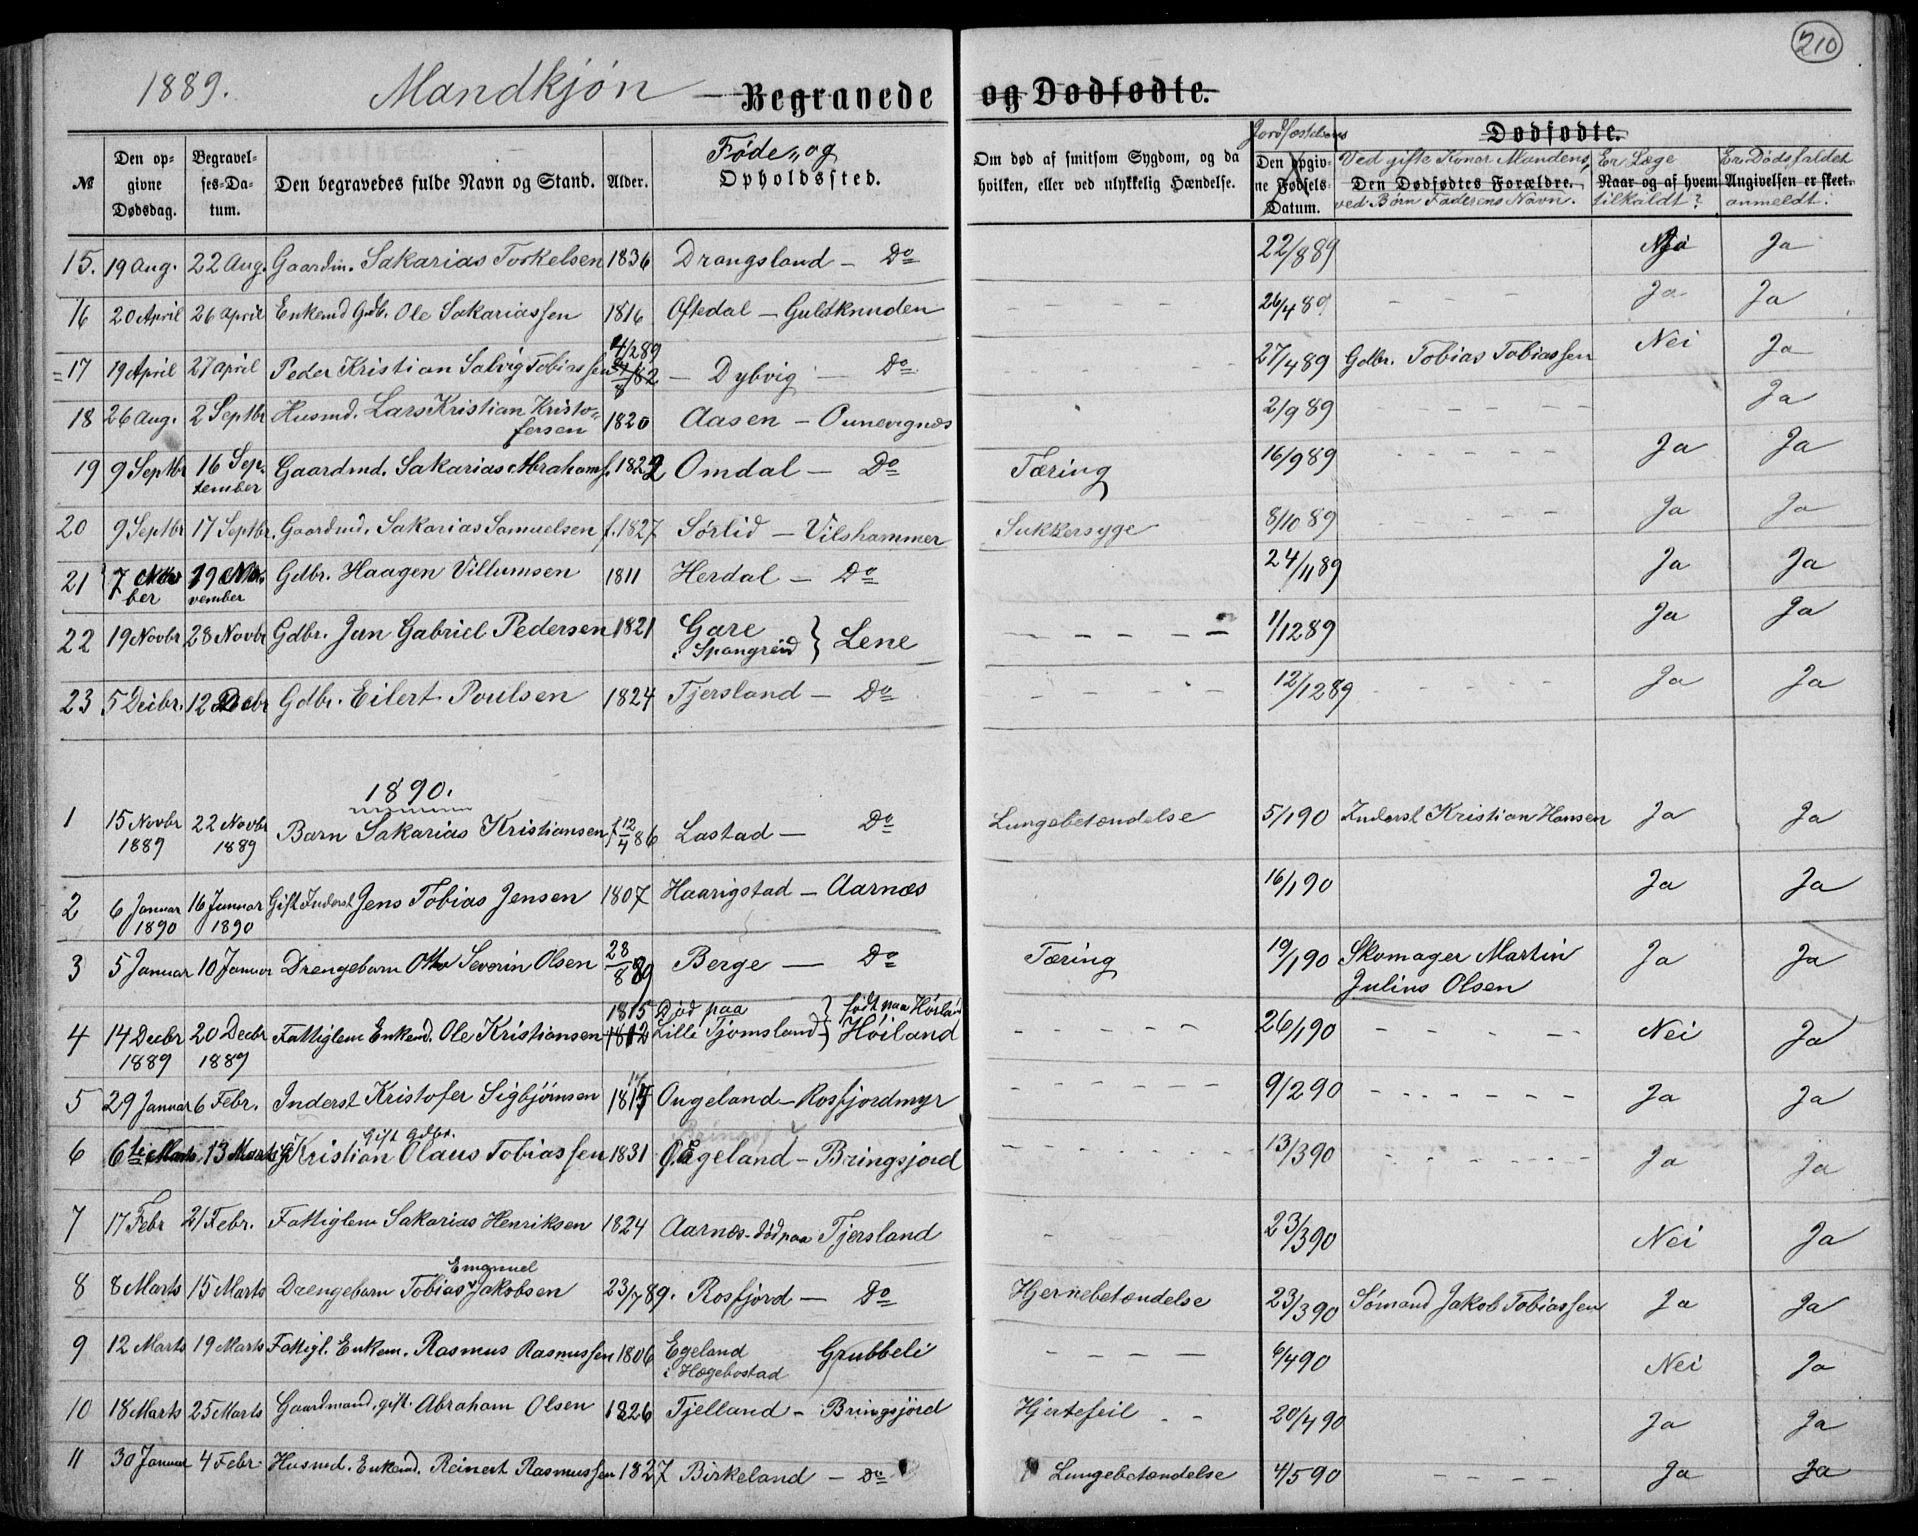 210
1889. Mandkjøn — Begravede og Dødfødte.
№ | Den opgivne Dødsdag. | Begravelses-Datum. | Den begravedes fulde Navn og Stand. | Alder. | Føde- og Opholdssted. | Om død af smitsom Sygdom, og da hvilken, eller ved ulykkelig Hændelse. | Jordfæstelses Den opgivne Fødsels Datum. | Dødfødte. Ved gifte Koner Mandens, Den Dødfødtes Forældre. ved Børn Faderens Navn. | Er Læge Naar og af hvem tilkaldt? | Er Dødsfaldet Angivelsen er skeet. anmeldt?
15. | 19 Aug. | 22 Aug. | Gaardm. Sakarias Torkelsen | 1836 | Drangsland — Do | | 22/889 | | Ja | Ja
16 | 20 April | 26 April | Enkemd Gdb. Ole Sakariassen | 1816 | Oftedal — Guldknuden | - - - | 26/489 | - - - | Ja | Ja
17 | 19 April | 27 April | Peder Kristian Salvig Tobiassen | 4/289 /82 | — Dybvig — Do | | 27/489 | Gdbr. Tobias Tobiassen | Nei | Ja
18 | 26 Aug. | 2 Septbr | Husmd. Lars Kristian Kristofersen | 1820 | Aasen — Ounevignes | | 2/989 | - - - | | Ja
19 | 9 Septbr | 16 September | Gaardmd. Sakarias Abrahams. | 1822 | Omdal — Do | Tæring | 16/989 | - - - | Ja | Ja
20 | 9 Septbr | 17 Septbr. | Gaardmd. Sakarias Samuelsen | f. 1827 | Sørlid — Vilshammer | Sukkersyge | 8/1089 | - - - | Ja | Ja
21 | 7 Novber | 19 November | Gdbr. Haagen Villumsen | 1811 | Herdal — Do | | 24/1189 | | Ja | Ja
22 | 19 Novbr | 28 Novbr | Gdbr. Jen Gabriel Pedersen | 1821 | Gare i Spangreid } Lene | - - - | 1/1289 | | Ja | Ja
23 | 5 Decbr. | 12 Decbr | Gdbr. Eilert Poulsen | 1824 | Tjersland — Do | - - - | 12/1289 | - - - | Ja | Ja
1890.
1 | 15 Novbr 1889 | 22 Novbr 1889 | Barn Sakarias Kristiansen | f 12/4 86 | Lastad — Do | Lungebetændelse | 5/190 | Inderst Kristian Hansen | Ja | Ja
2 | 6 Januar 1890 | 16 Januar 1890 | Gift Inderst Jens Tobias Jensen | 1807 | Haarigstad — Aarnæs | | 16/190 | | Ja | Ja
3 | 5 Januar | 10 Januar | Drengebarn Otto Severin Olsen | 28/8 89 | Berge — Do | Tæring | 19/190 | Skomager Martin Julius Olsen | Ja | Ja
4 | 14 Decbr 1889 | 20 Decbr 1889 | Fattiglem Enkemd. Ole Kristiansen | 1815 1812 | Død paa Lille Tjomsland } født paa Høiland Høiland | - - - | 26/190 | - - - | Nei | Ja
5 | 29 Januar | 6 Febr. | Inderst Kristofer Sigbjørnsen | 1814 | Ougeland — Rosfjordmyr | - - - | 9/290 | - - - | Ja | Ja
6 | 6te Marts | 13 Marts | gift Gdbr. Kristian Olaus Tobiassen | 1831 | Egeland — Bringsjord | - - - | 13/390 | - - - | Ja | Ja
7 | 17 Febr | 21 Febr. | Fattiglem Sakarias Henriksen | 1824 | Aarnæs - død paa Tjersland | - - | 23/390 | | Nei | Ja
8 | 8 Marts | 15 Marts | Drengebarn Tobias Emanuel Jakobsen | 23/789. | Rosfjord — Do | Hjernebetændelse | 23/390 | Sømand Jakob Tobiassen | Ja | Ja
9 | 12 Marts | 19 Marts | Fattigl. Enkem. Rasmus Rasmussen | 1806 | Egeland i Hægebostad Grubbeli | - - - | 6/490 | | Nei | Ja
10 | 18 Marts | 25 Marts | Gaardmand, gift. Abraham Olsen | 1826 | Tjelland — Bringsjord | Hjertefeil - - | 20/490 | | Ja | Ja
11 | 30 Januar | 4 Febr. | Husmd. Enkemd. Reinert Rasmussen | 1827 | Birkeland — Do | Lungebetændelse | 4/590 | - - - | Ja | Ja